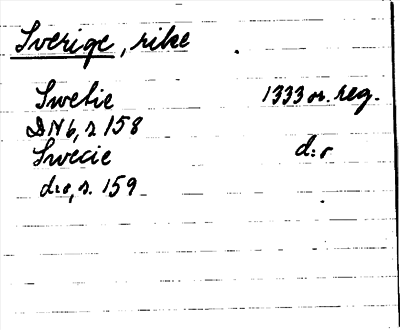 Sverige, rike
Swetie 1333 or. reg.
DN 6, s 158
Swecie d:o
d:o, s. 159